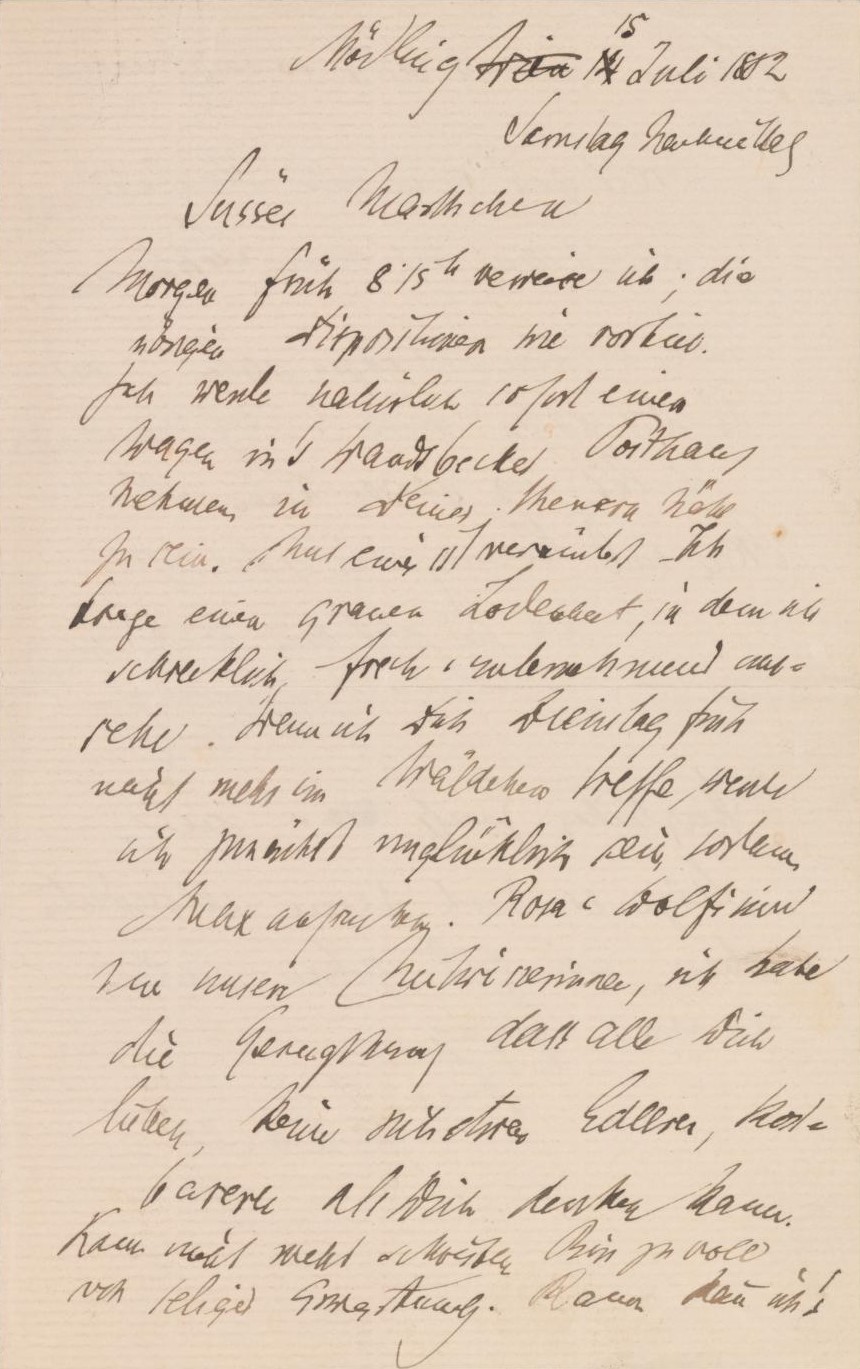 Mödling Wien 15 Juli 1882
Samstag Nachmittag
Süsses Marthchen
Morgen früh 8·15h verreise ich; die
übrigen Dispositionen wie vorhin.
Ich werde natürlich sofort einen
Wagen in's Wandsbecker Posthaus
nehmen, in Deiner theuren Nähe
zu sein. Nur eins ist verändert Ich
trage einen grauen Lodenhut, in dem ich
schrecklich frech u unternehmend aus=
sehe. Wenn ich Dich Dienstag früh
nicht mehr im Wäldchen treffe, werde
ich zunächst unglücklich sein, sodann
Max aufsuchen. Rosa u Dolfi sind
unsere, ich habe
die Genugthuung dass alle Dich
lieben, keine sich etwas Edleres, Kost=
bareres als Dich denken kann.
Kann nicht mehr schreiben Bin zu voll
von seliger Erwartung. Kaum kann ich's